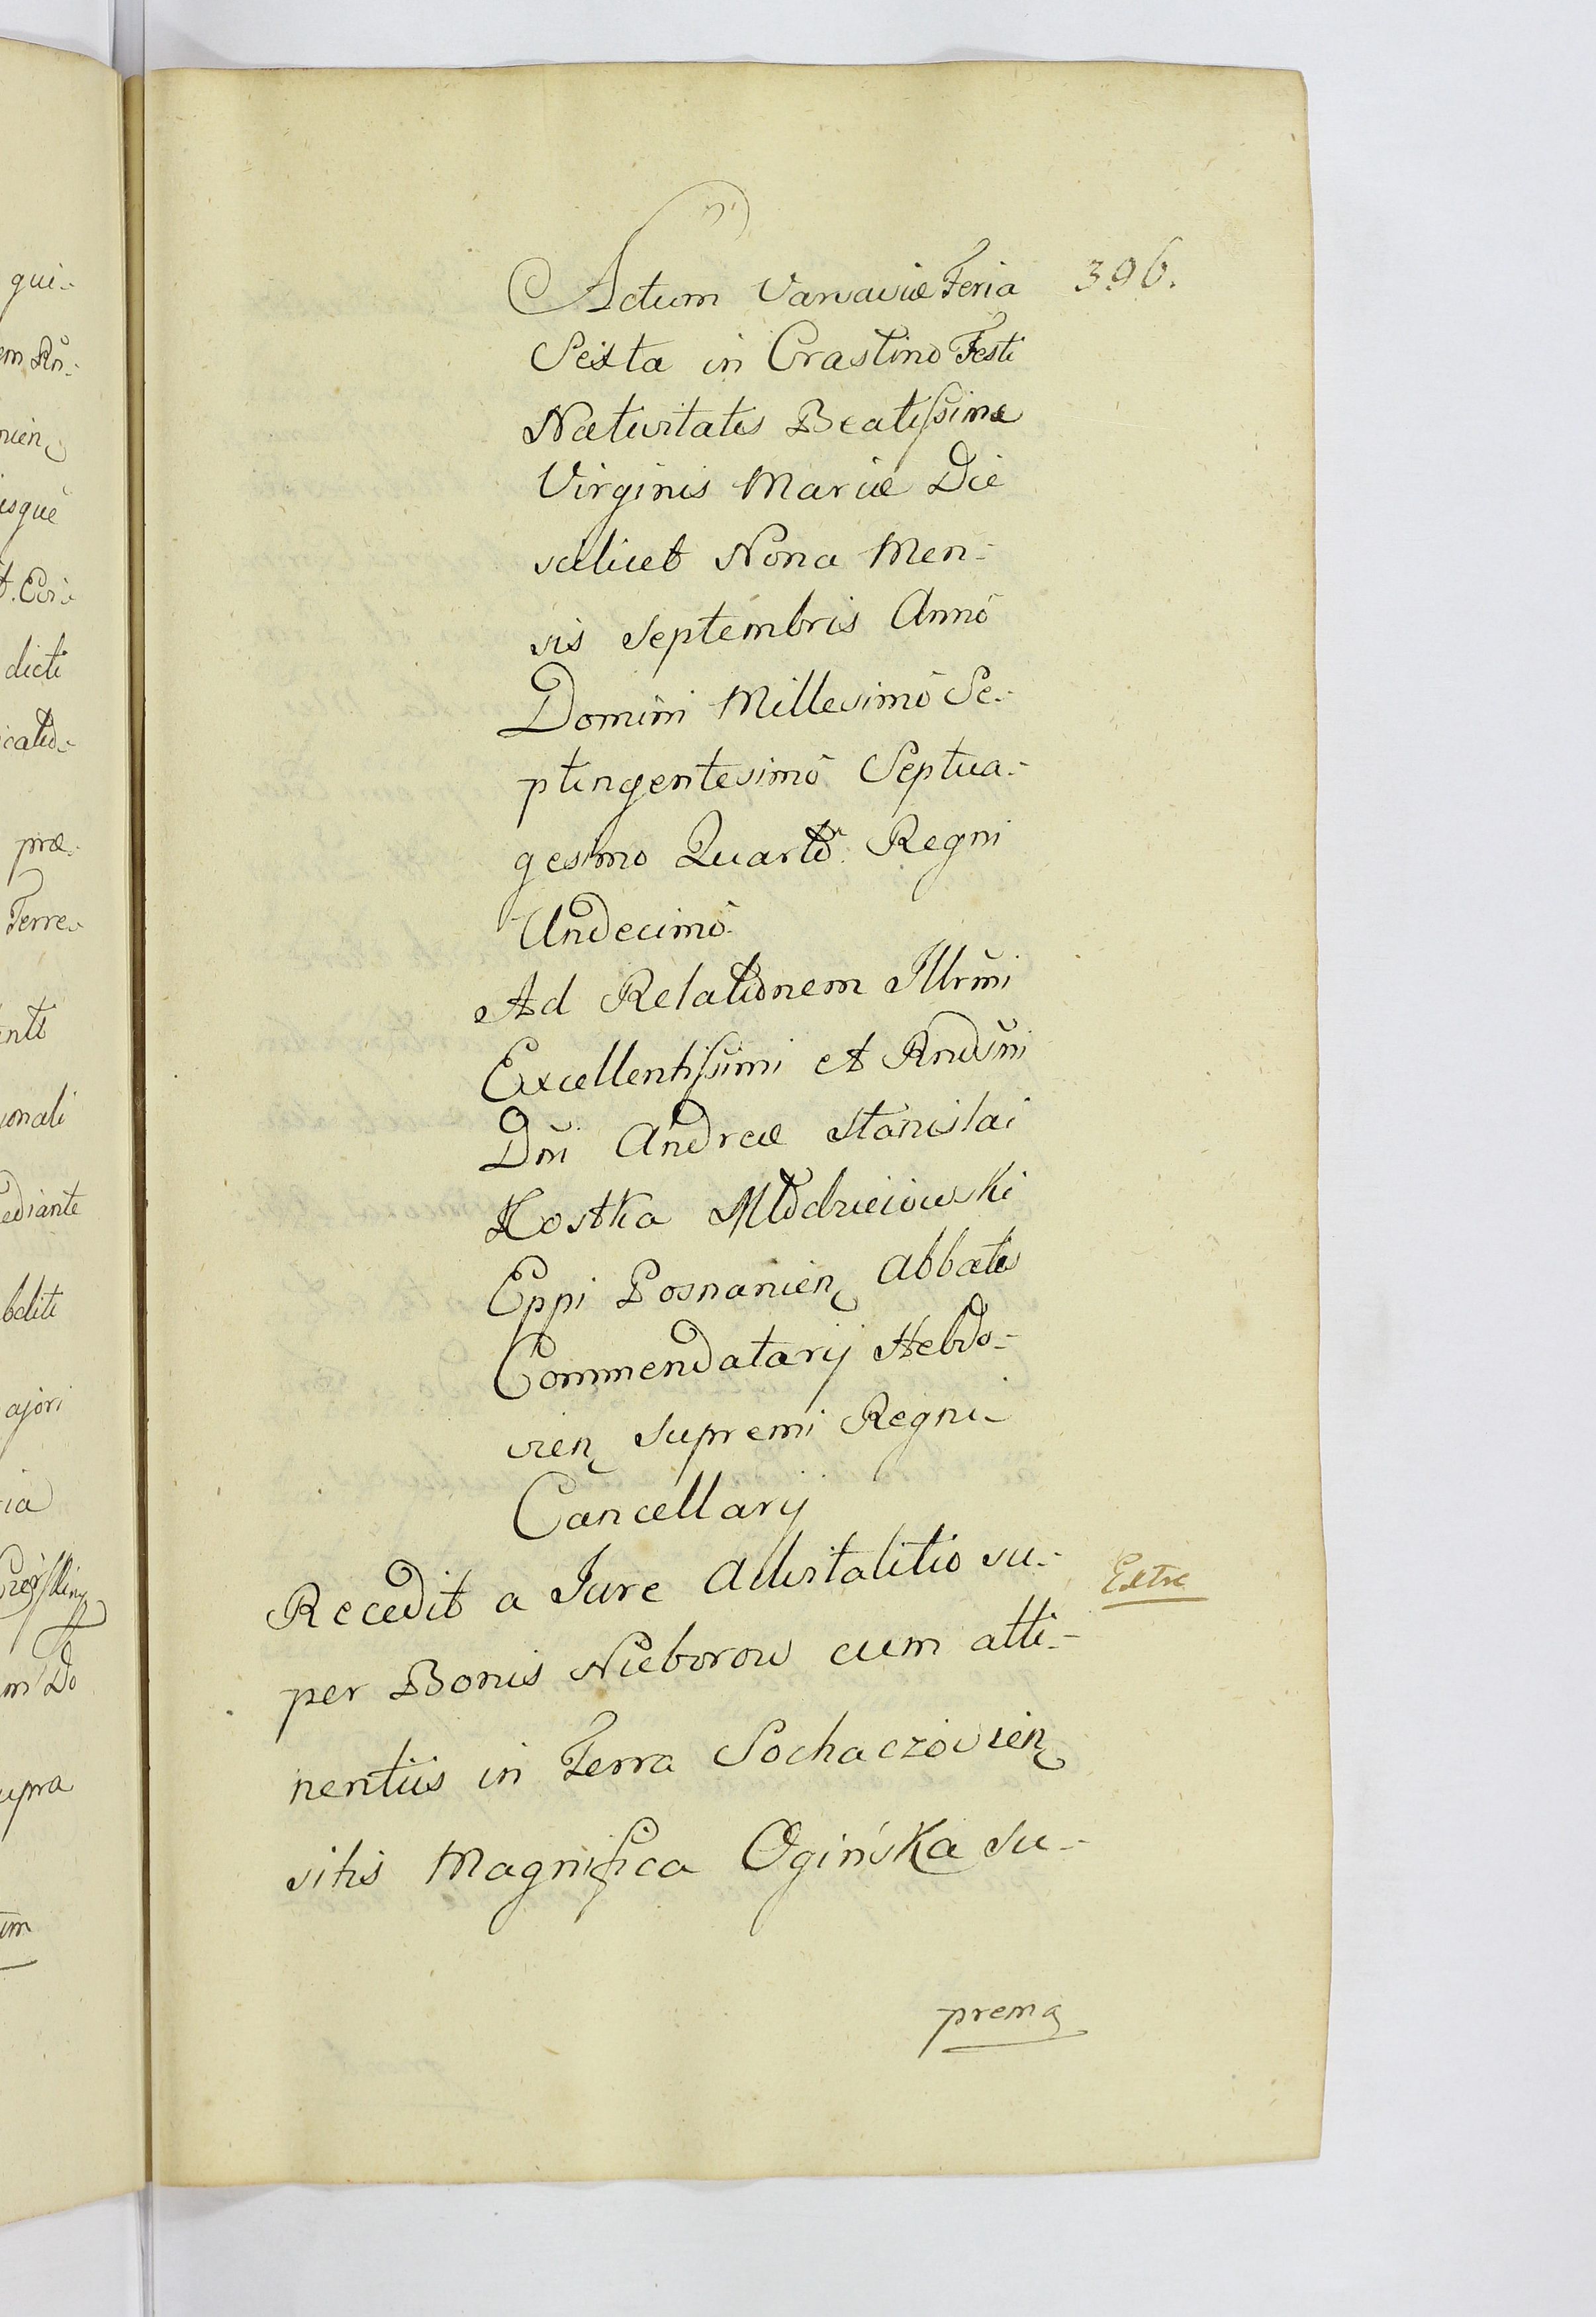 Actum Varsaviæ Feria 396.
Sexta in Crastino Festi
Nativitatis Beatissimæ
Virginis Mariæ Die
scilicet Nona Men-
sis Septembris Annô
Domini Millesimô Se-
ptingentesimô Septua-
gesimo Quartô Regni
Undecimô
Ad Relationem Illrmi
Excellentissimi et Rndsmi
Dni Andreæ Stanislai
Kostka Młodzieiowski
Eppi Posnanien Abbatis
Commendatarij Hebdo-
vien Supremi Regni
Cancellarij
Recedit a Jure Advitalitio su- Extre
per Bonis Nieborow cum atti-
nentiis in Terra Sochaczovien
sitis Magnifica Ogińska Su-
prema
qui-
dicti
præ-
Terre-
ediante
ajori
upra